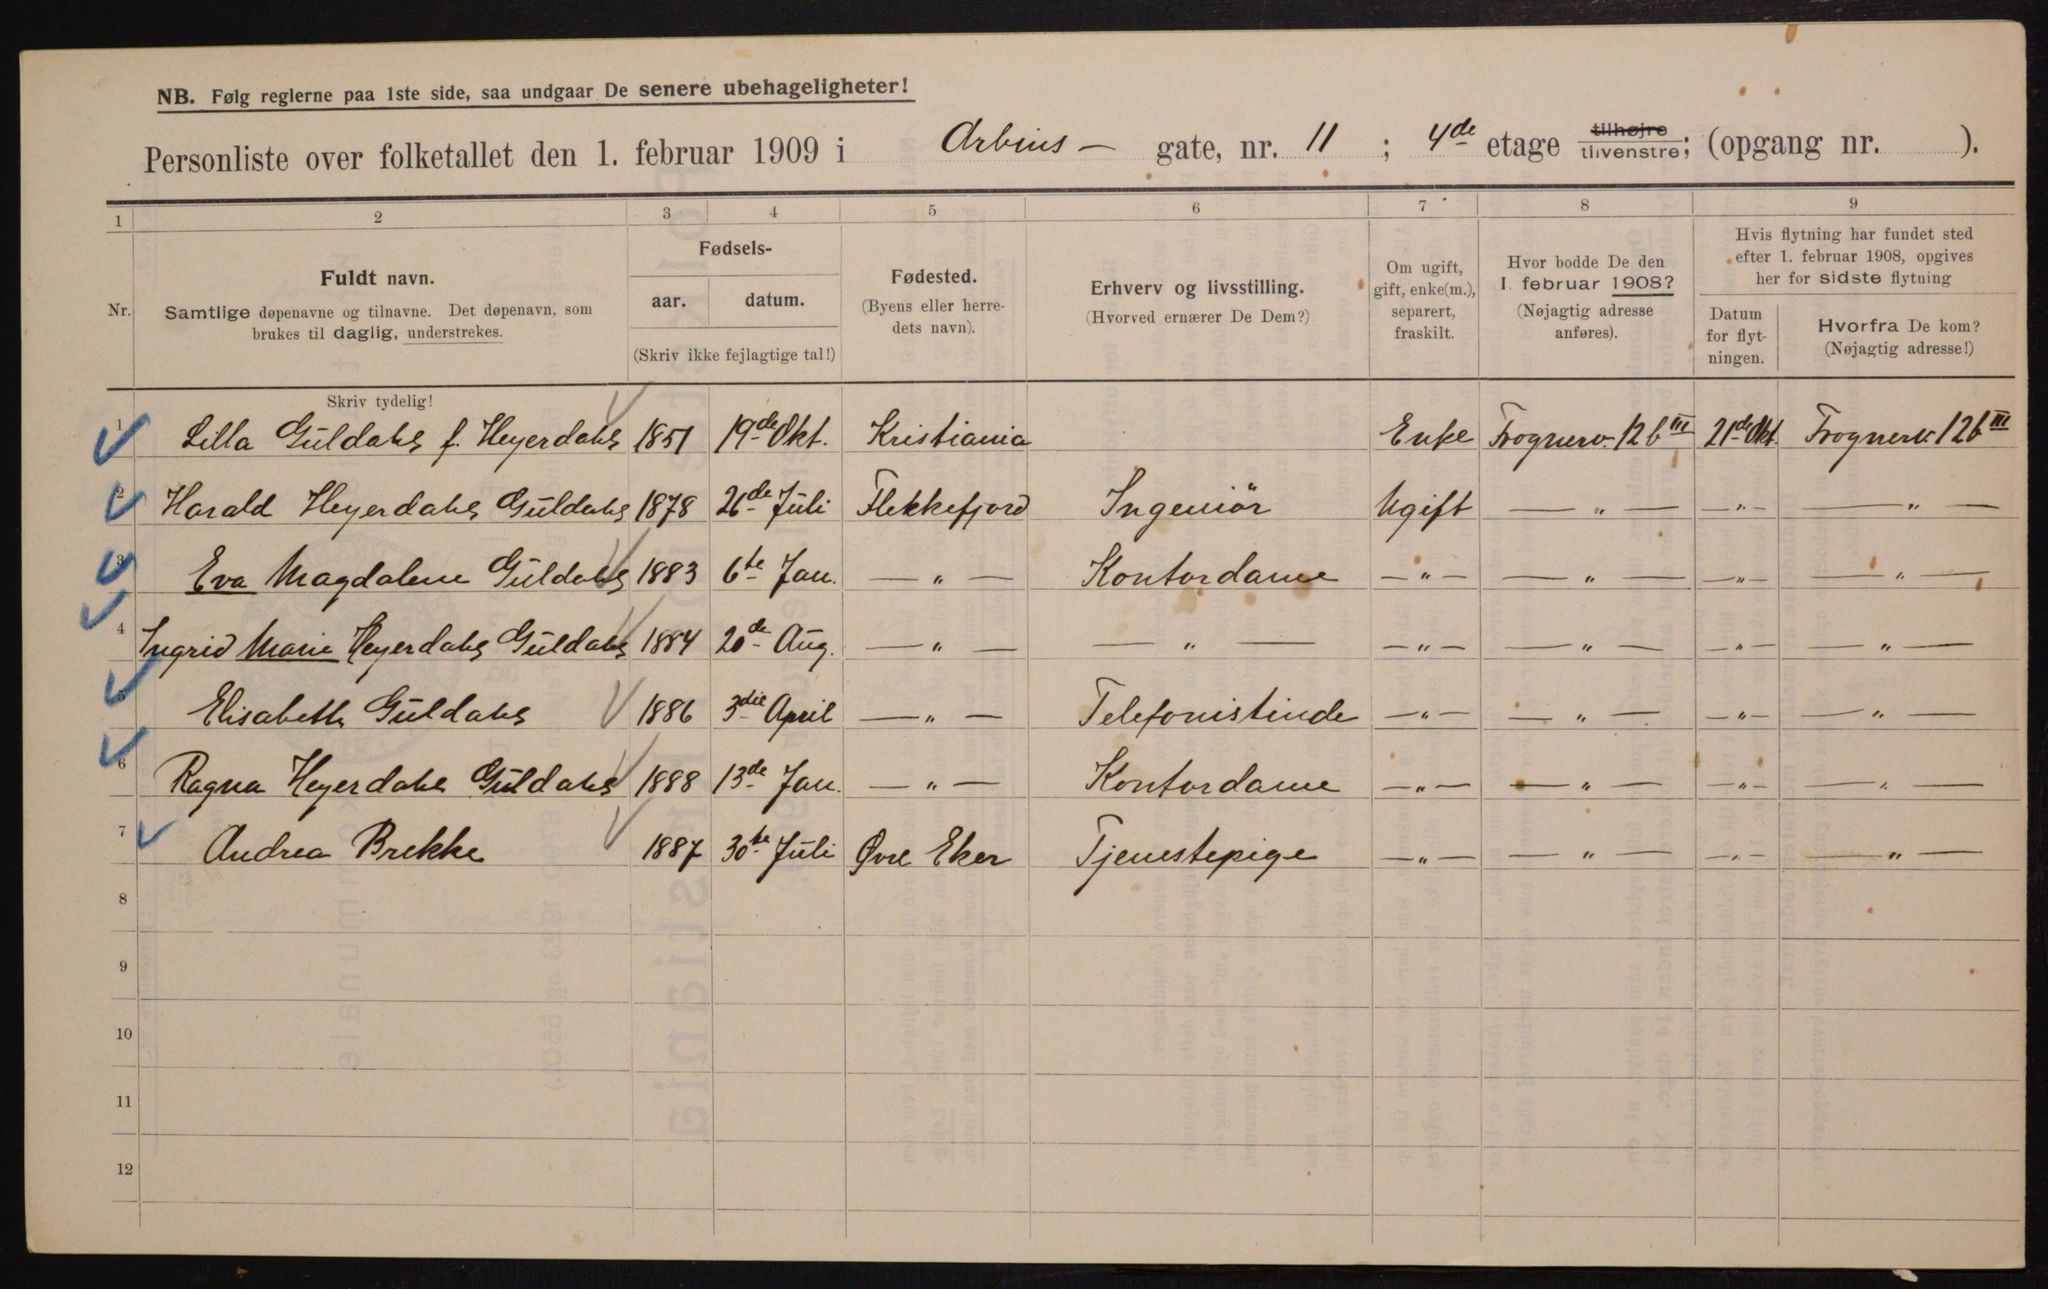 NB. Følg reglerne paa 1ste side, saa undgaar De senere ubehageligheter!
Personliste over folketallet den 1. februar 1909 i Arbins - gate, nr. 11 ; 4de etage tilhøjre tilvenstre; (opgang nr. ).
1 2 3 4 5 6 7 8 9
Nr.
Fuldt navn.
Samtlige døpenavne og tilnavne. Det døpenavn, som
brukes til daglig, understrekes.
Fødsels-
aar. datum.
(Skriv ikke fejlagtige tal!)
Fødested.
(Byens eller herre-
dets navn).
Erhverv og livsstilling.
(Hvorved ernærer De Dem?)
Om ugift,
gift, enke(m.),
separert,
fraskilt.
Hvor bodde De den
1. februar 1908?
(Nøjagtig adresse
anføres).
Hvis flytning har fundet sted
efter 1. februar 1908, opgives
her for sidste flytning
Datum
for flyt-
ningen.
Hvorfra De kom?
(Nøjagtig adresse!)
Skriv tydelig!
1 Lilla Guldahl f. Heyerdahl 1851 19de Okt. Kristiania Enke Frognerv. 12 b III 21de Okt. Frognerv. 12 b III
2 Harald Heyerdahl Guldahl 1878 26de Juli Flekkefjord Ingeniör Ugift — " — — " — — " —
3 Eva Magdalene Guldahl 1883 6te Jan. — " — Kontordame — " — — " — — " — — " —
4 Ingrid Marie Heyerdahl Guldahl 1884 20de Aug. — " — — " — — " — — " — — " — — " —
5 Elisabeth Guldahl 1886 3die April — " — Telefonistinde — " — — " — — " — — " —
6 Ragna Heyerdahl Guldahl 1888 13de Jan. — " — Kontordame — " — — " — — " — — " —
7 Andrea Brekke 1887 30te Juli Øvre Eker Tjenestepige — " — — " — — " — — " —
8
9
10
11
12